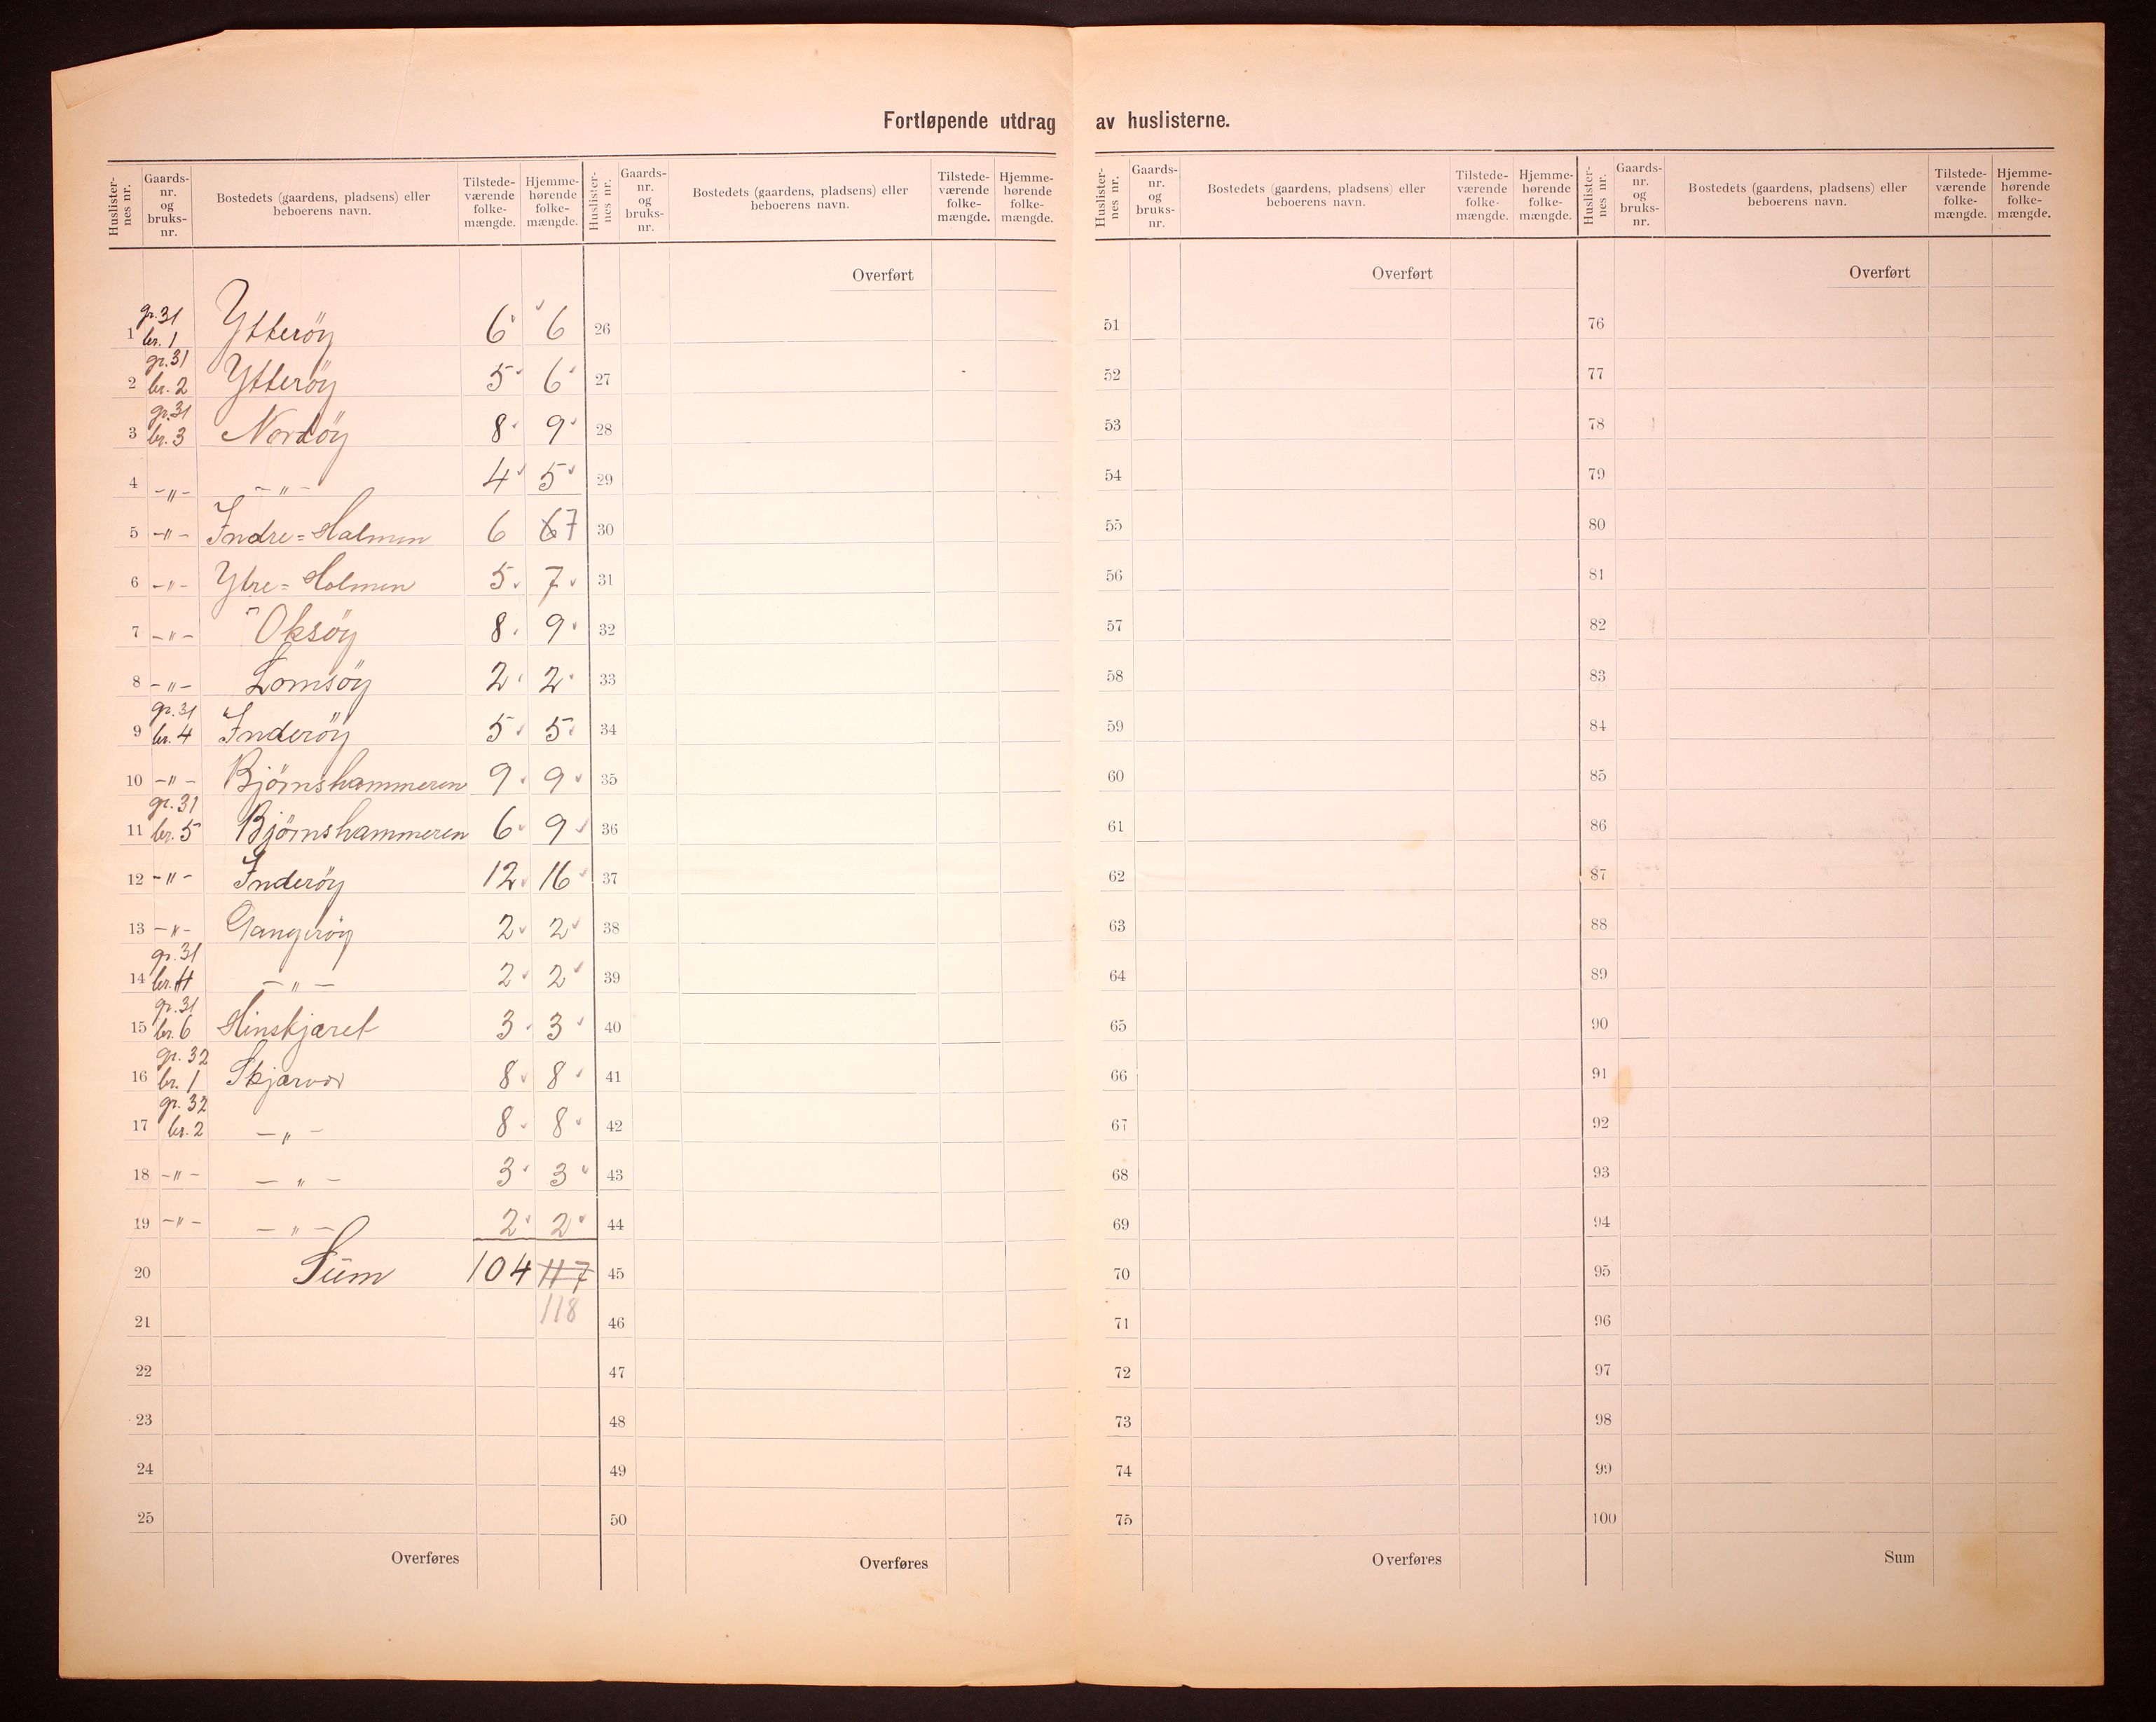 Fortløpende utdrag av huslisterne.
Huslister-nes nr. Gaards-nr. og bruks-nr. Bostedets (gaardens, pladsens) eller beboerens navn. Tilstede-værende folke-mængde. Hjemme-hørende folke-mængde. Huslister-nes nr. Gaards-nr. og bruks-nr. Bostedets (gaardens, pladsens) eller beboerens navn. Tilstede-værende folke-mængde. Hjemme-hørende folke-mængde. Huslister-nes nr. Gaards-nr. og bruks-nr. Bostedets (gaardens, pladsens) eller beboerens navn. Tilstede-værende folke-mængde. Hjemme-hørende folke-mængde. Huslister-nes nr. Gaards-nr. og bruks-nr. Bostedets (gaardens, pladsens) eller beboerens navn. Tilstede-værende folke-mængde. Hjemme-hørende folke-mængde.
Overført Overført Overført
1 gr. 31 br. 1 Ytteröy 6 6 26 51 76
2 gr. 31 br. 2 Ytteröy 5 6 27 52 77
3 gr. 31 br. 3 Nordöy 8 9 28 53 78
4 -"- -"- 4 5 29 54 79
5 -"- Indre=Holmen 6 6 7 30 55 80
6 -"- Ytre=Holmen 5 7 31 56 81
7 -"- Oksöy 8 9 32 57 82
8 -"- Lomsöy 2 2 33 58 83
9 gr. 31 br. 4 Inderöy 5 5 34 59 84
10 -"- Björnshammeren 9 9 35 60 85
11 gr. 31 br. 5 Björnshammeren 6 9 36 61 86
12 -"- Inderöy 12 16 37 62 87
13 -"- Gangeröy 2 2 38 63 88
14 gr. 31 br. 4 -"- 2 2 39 64 89
15 gr. 31 br. 6 Hinskjæret 3 3 40 65 90
16 gr. 32 br. 1 Skjærvær 8 8 41 66 91
17 gr. 32 br. 2 -"- 8 8 42 67 92
18 -"- -"- 3 3 43 68 93
19 -"- -"- 2 2 44 69 94
20 Sum 104 117 45 70 95
21 118 46 71 96
22 47 72 97
23 48 73 98
24 49 74 99
25 50 75 100
Overføres Overføres Overføres Sum